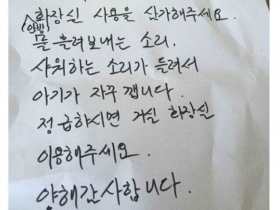 안방 화장실 사용을 삼가해주세요.
물 흘려보내는 소리.
샤워하는 소리가 들려서
아기가 자꾸 깹니다.
정 급하시면 거실 화장실
이용해주세요.
양해감사합니다.